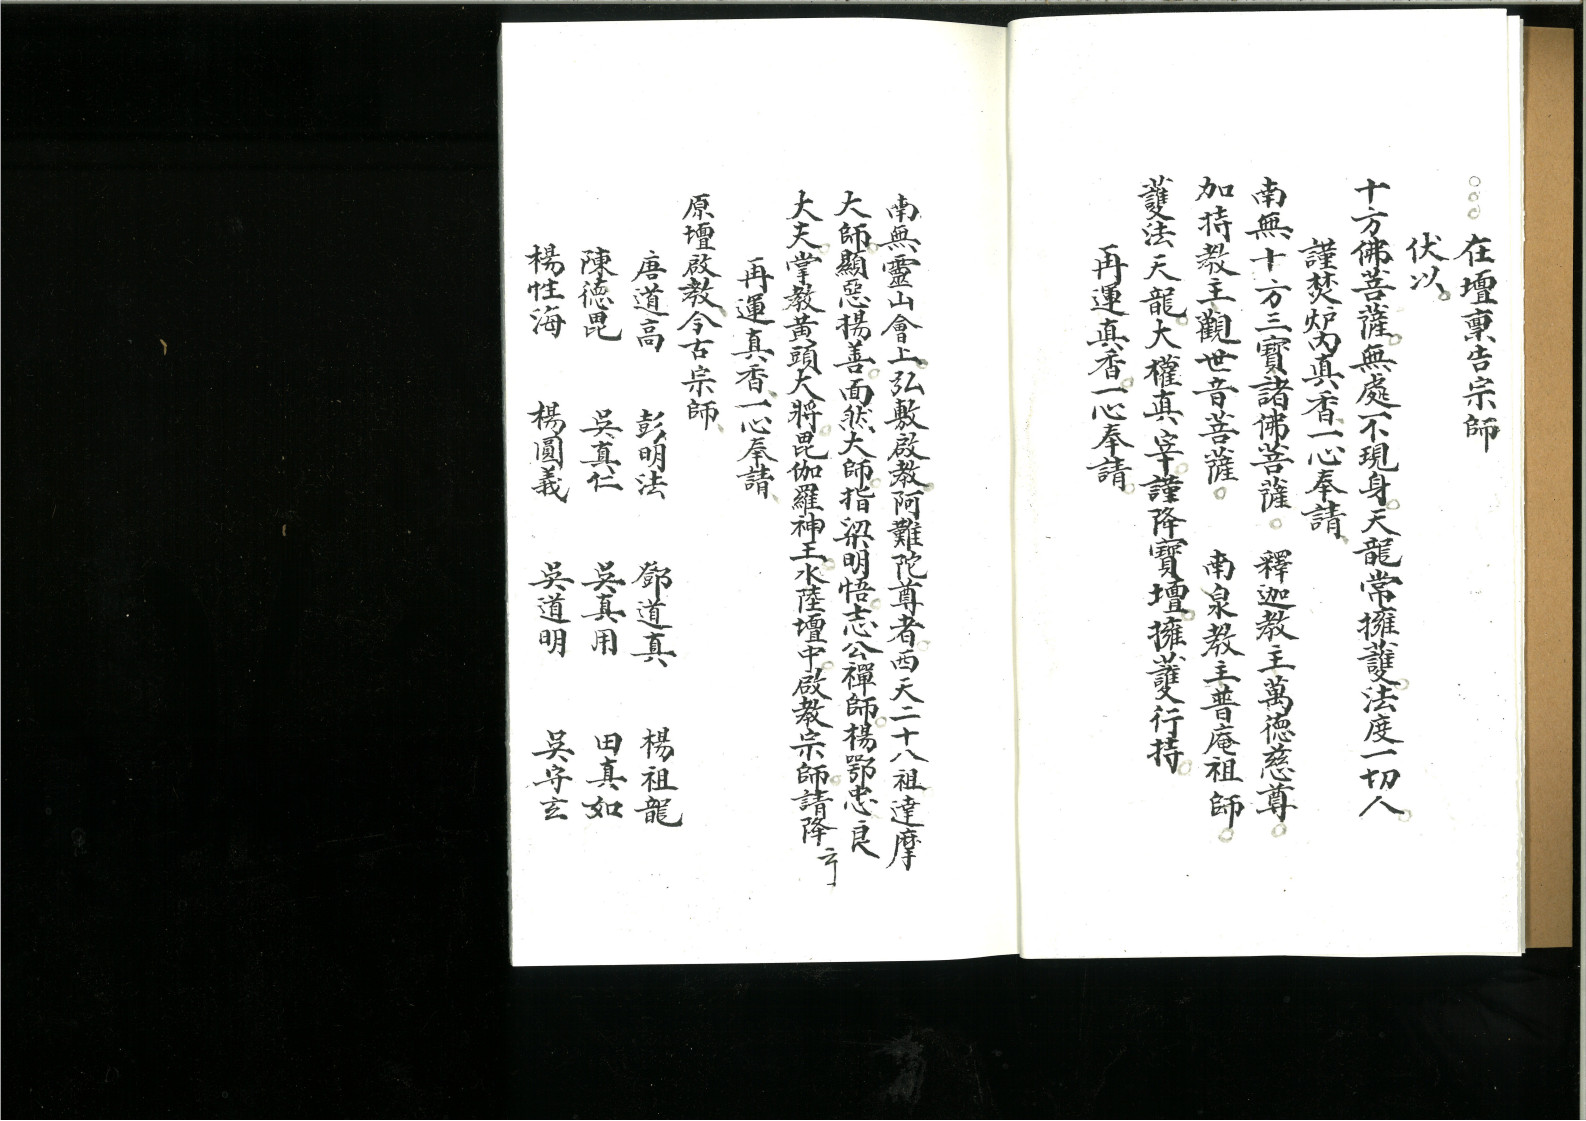 ○○○在壇稟告宗師
伏以。
十方佛菩薩。無處不現身。天龍常擁護。法度一切人。
謹焚炉內真香、一心奉請、
南無十方三寶諸佛菩薩。釋迦教主萬德慈尊。
加持教主觀世音菩薩。南泉教主普庵祖師。
護法天龍。大權真宰。謹降寶壇。擁護行持。
再運真香。一心奉請。
南無靈山會上。弘敷啟教。阿難陀尊者。西天二十八祖達摩
大師。顯惡揚善。面然大師。指梁明悟。志公禪師。楊鄂忠良
大夫。掌教黃頭大將。毘伽羅神王。水陸壇中。啟教宗師。請降云
再運真香、一心奉請、
原壇啟教、今古宗師、
唐道高 彭明法 鄧道真 楊祖龍
陳德毘 吳真仁 吳真用 田真如
楊性海 楊圓義 吳道明 吳守玄